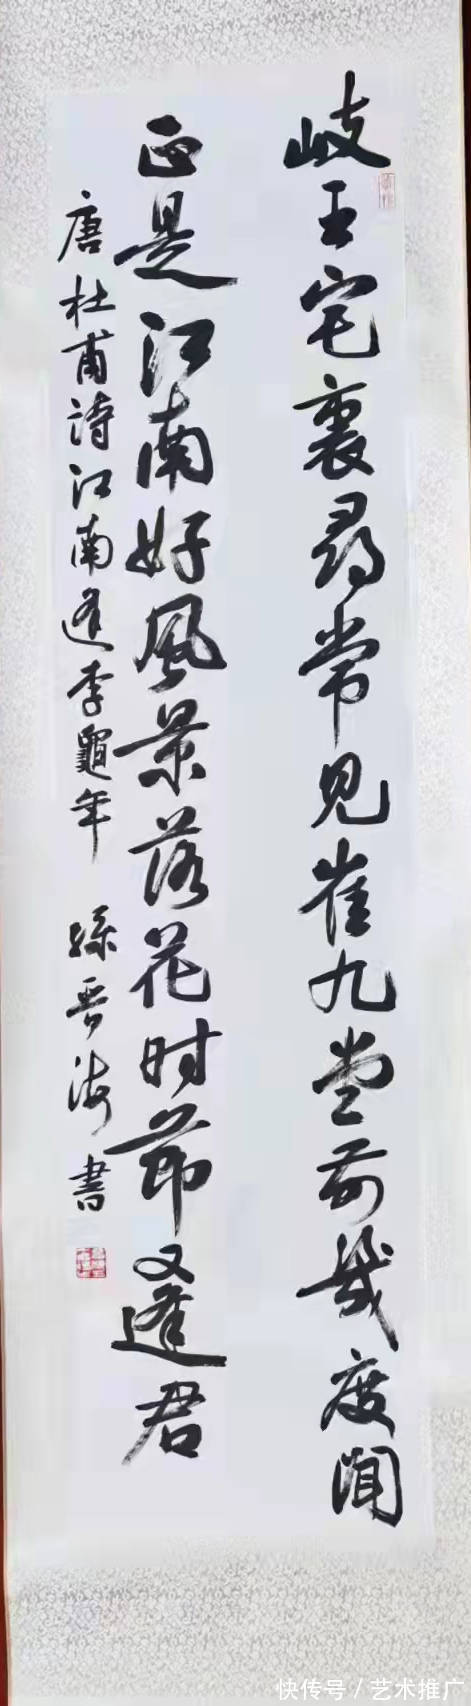 岐王宅裏尋常見崔九堂前幾度聞
正是江南好風景落花时節又逢君
唐杜甫詩江南逢李龜年 孫晋海 書
快传号/艺术推广